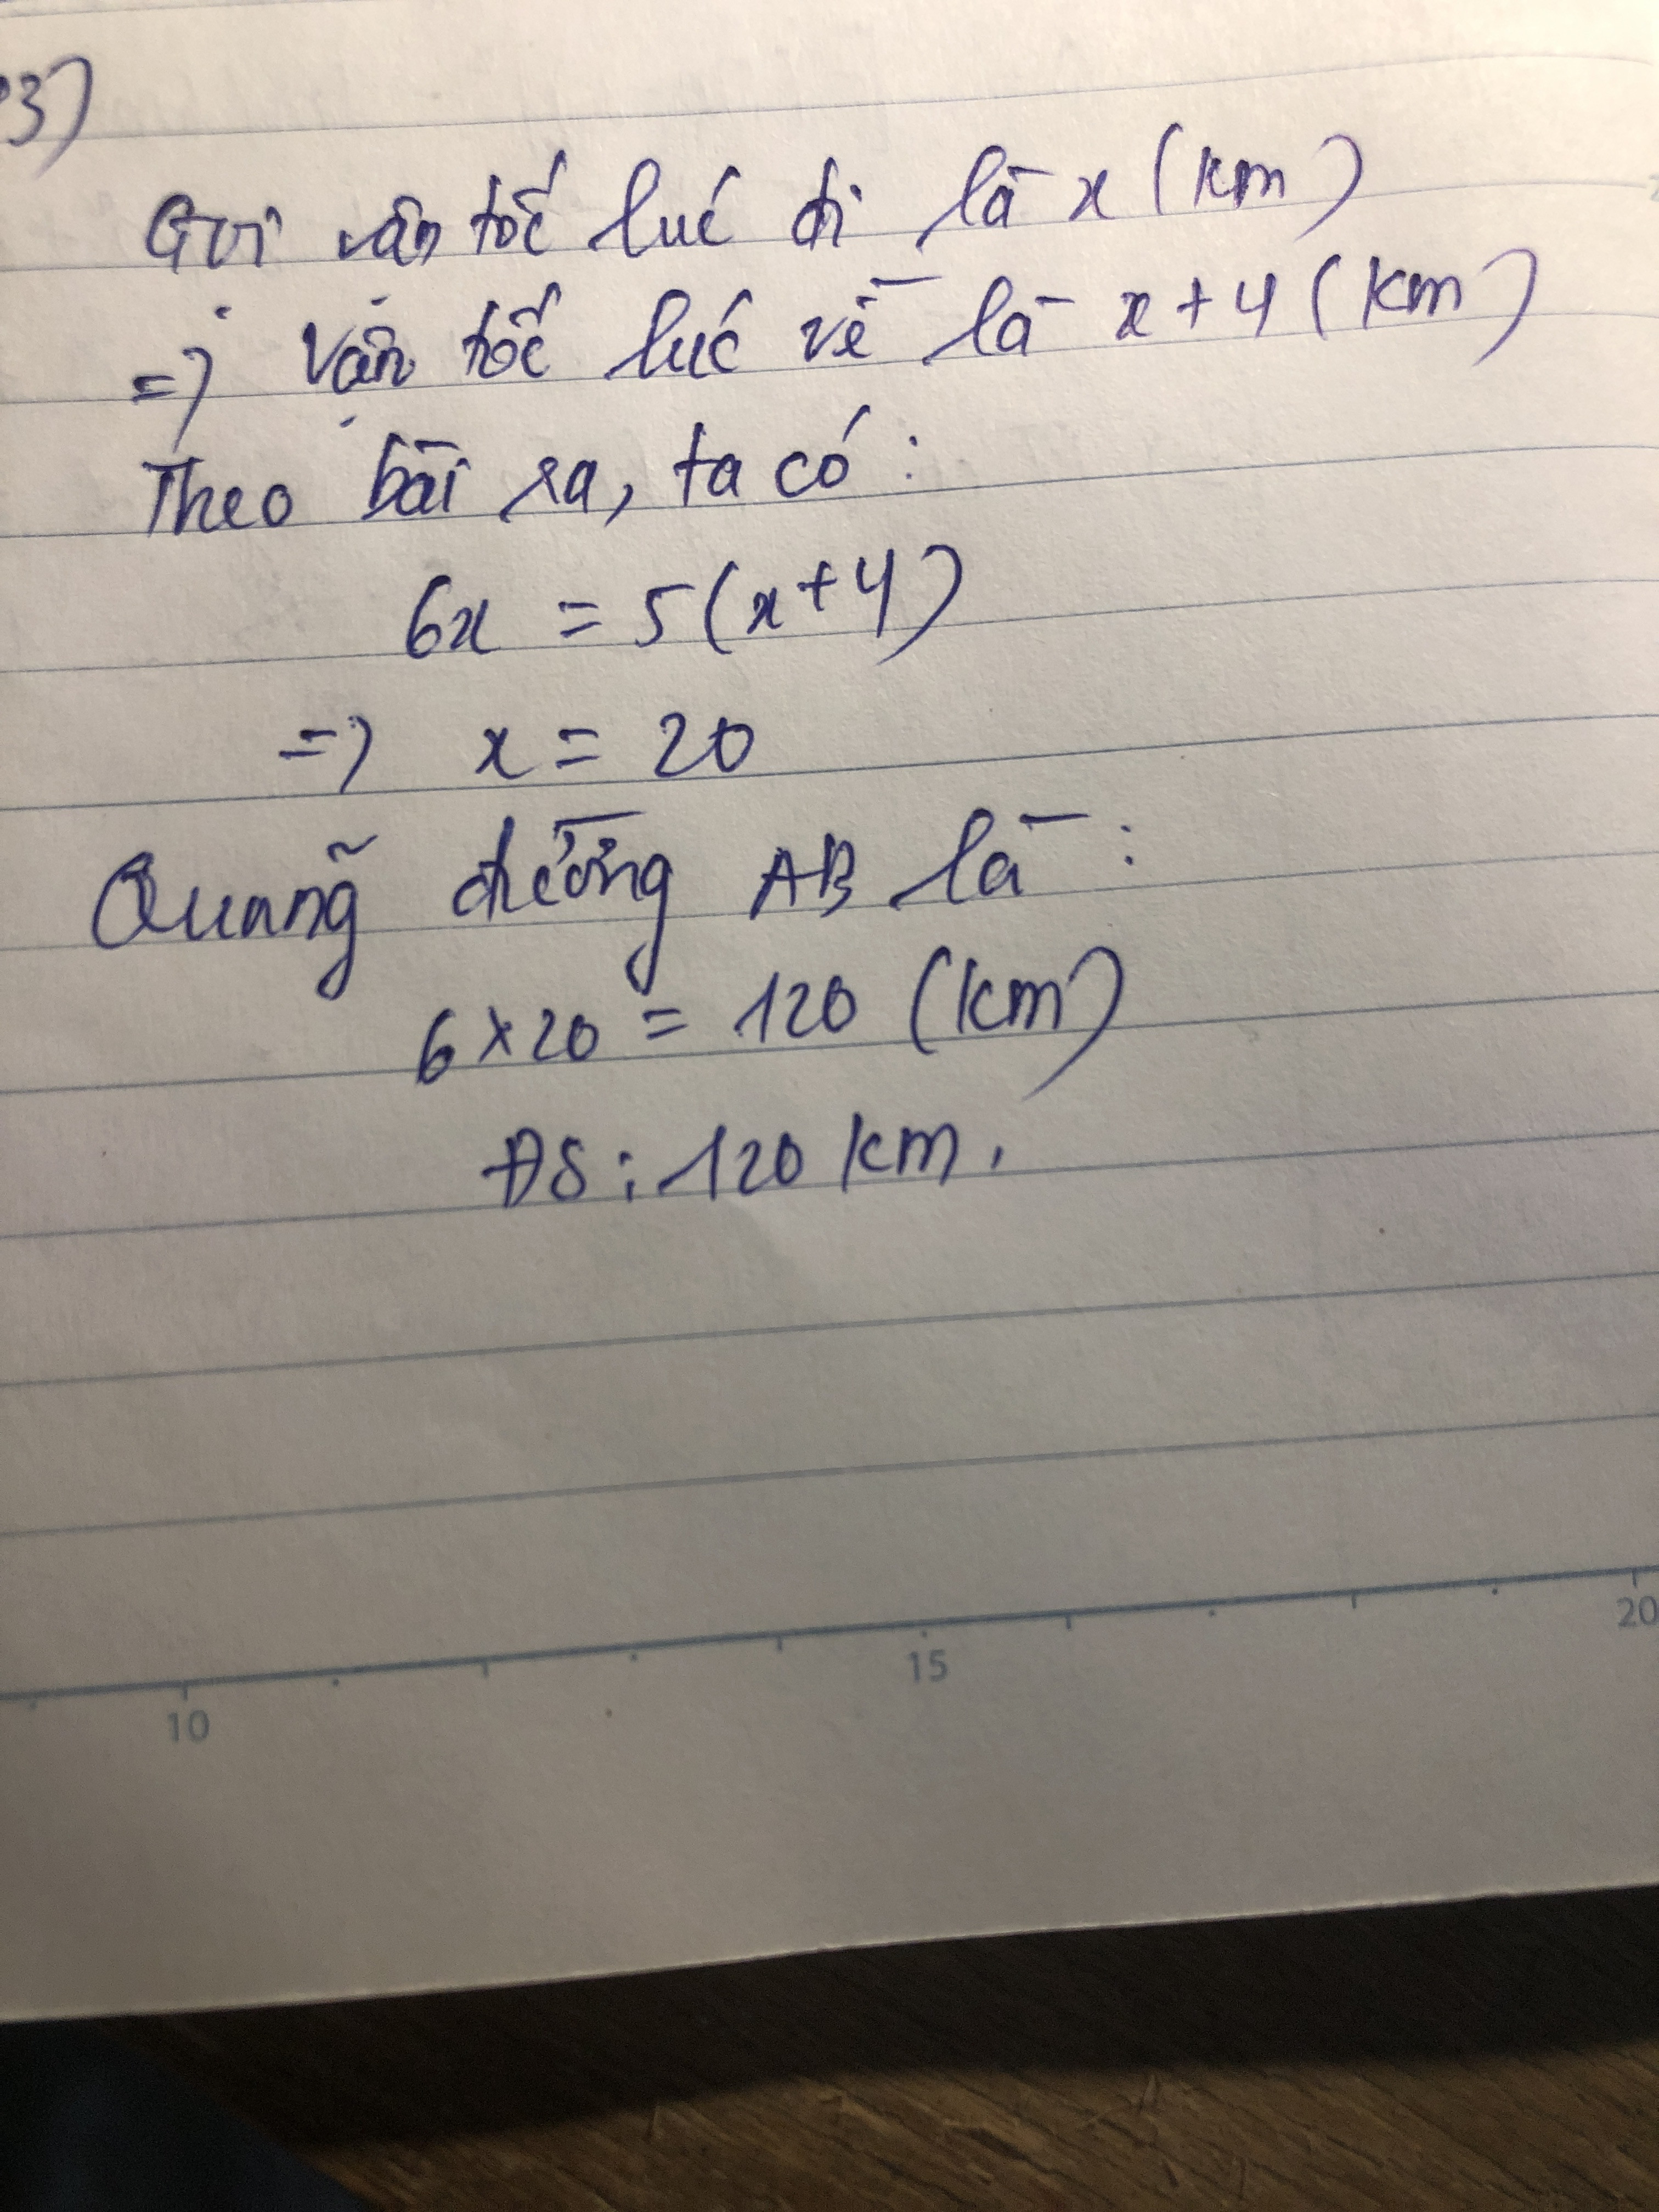 3)
Gọi vận tốc lúc đi là x (km)
=> vận tốc lúc về là x+4 (km)
Theo bài ra, ta có:
6x = 5(x+4)
=> x = 20
Quãng đường AB là:
6×20 = 120 (km)
ĐS: 120 km.
10 15 20